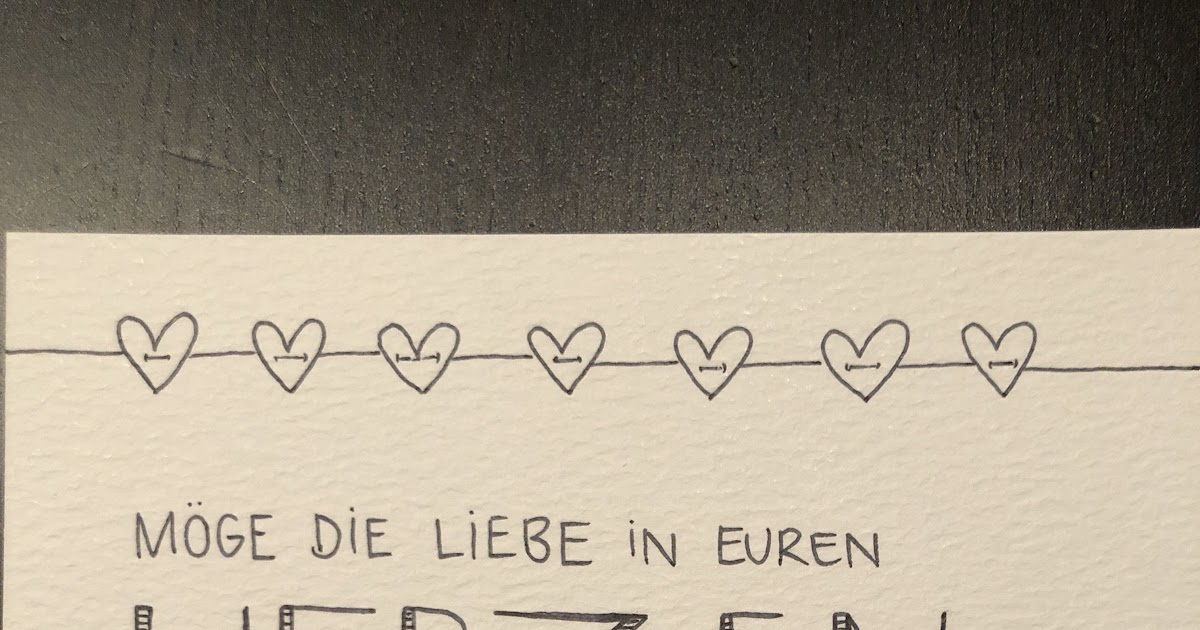 MÖGE DiE LiEBE iN EUREN